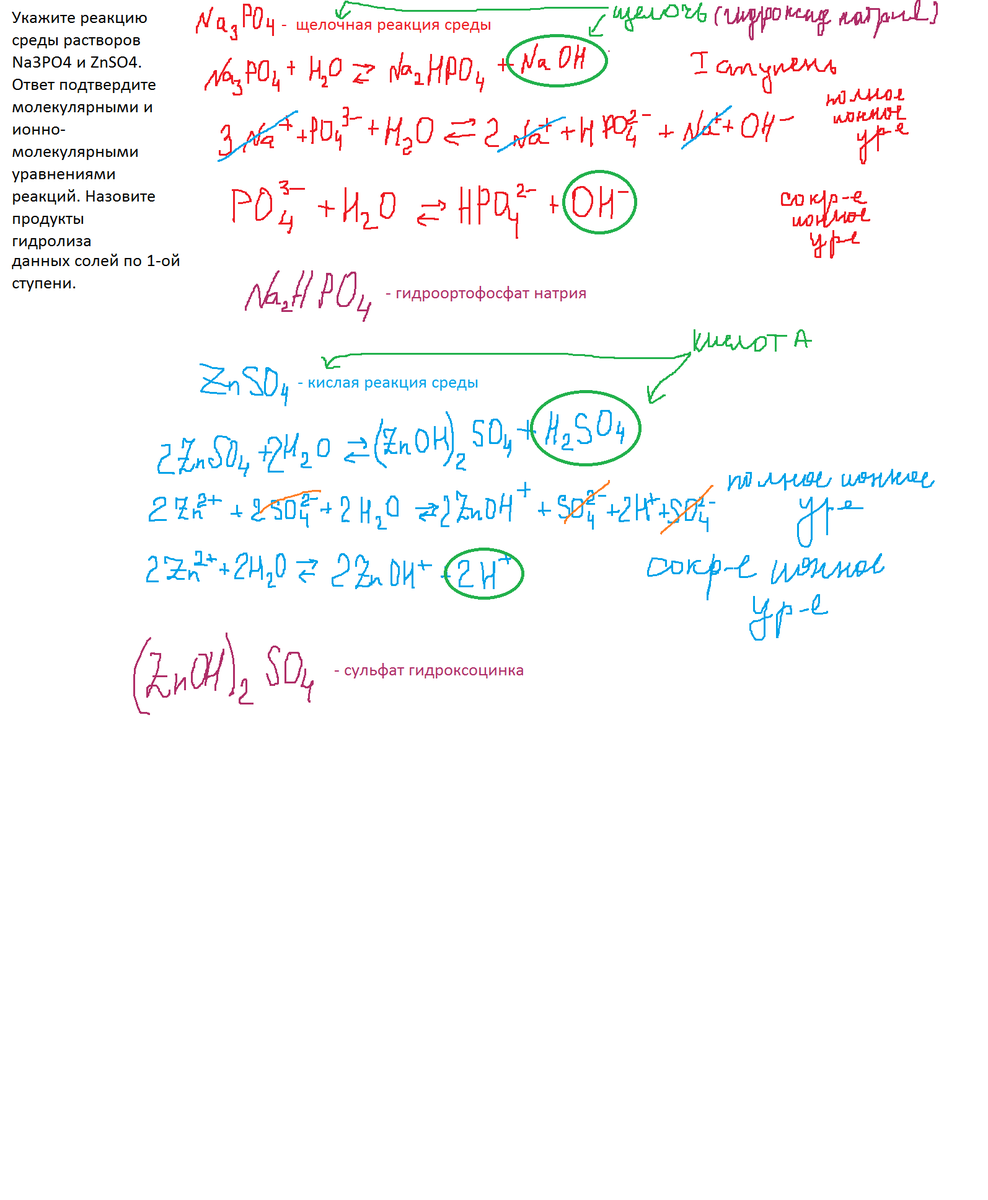 Укажите реакцию
среды растворов
Na3PO4 и ZnSO4.
Ответ подтвердите
молекулярными и
ионно-
молекулярными
уравнениями
реакций. Назовите
продукты
гидролиза
данных солей по 1-ой
ступени.
щелочь (гидроксид натрия)
Na₃PO₄ - щелочная реакция среды
Na₃PO₄ + H₂O ⇄ Na₂HPO₄ + NaOH I ступень
3Na⁺ + PO₄³⁻ + H₂O ⇄ 2Na⁺ + HPO₄²⁻ + Na⁺ + OH⁻
полное
ионное
ур-е
PO₄³⁻ + H₂O ⇄ HPO₄²⁻ + OH⁻
сокр-е
ионное
ур-е
Na₂HPO₄ - гидроортофосфат натрия
КИСЛОТА
ZnSO₄ - кислая реакция среды
2ZnSO₄ + 2H₂O ⇄ (ZnOH)₂SO₄ + H₂SO₄
2Zn²⁺ + 2SO₄²⁻ + 2H₂O ⇄ 2ZnOH⁺ + SO₄²⁻ + 2H⁺ + SO₄²⁻
полное ионное
ур-е
2Zn²⁺ + 2H₂O ⇄ 2ZnOH⁺ + 2H⁺
сокр-е ионное
ур-е
(ZnOH)₂SO₄ - сульфат гидроксоцинка